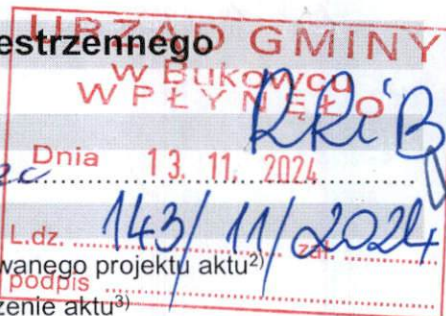 estrzennego
URZĄD GMINY
w Bukowcu
WPŁYNĘŁO
RRiB
Dnia 13. 11. 2024
ec
L.dz. 143/11/2024 zał.
wanego projektu aktu²⁾
podpis
zenie aktu³⁾